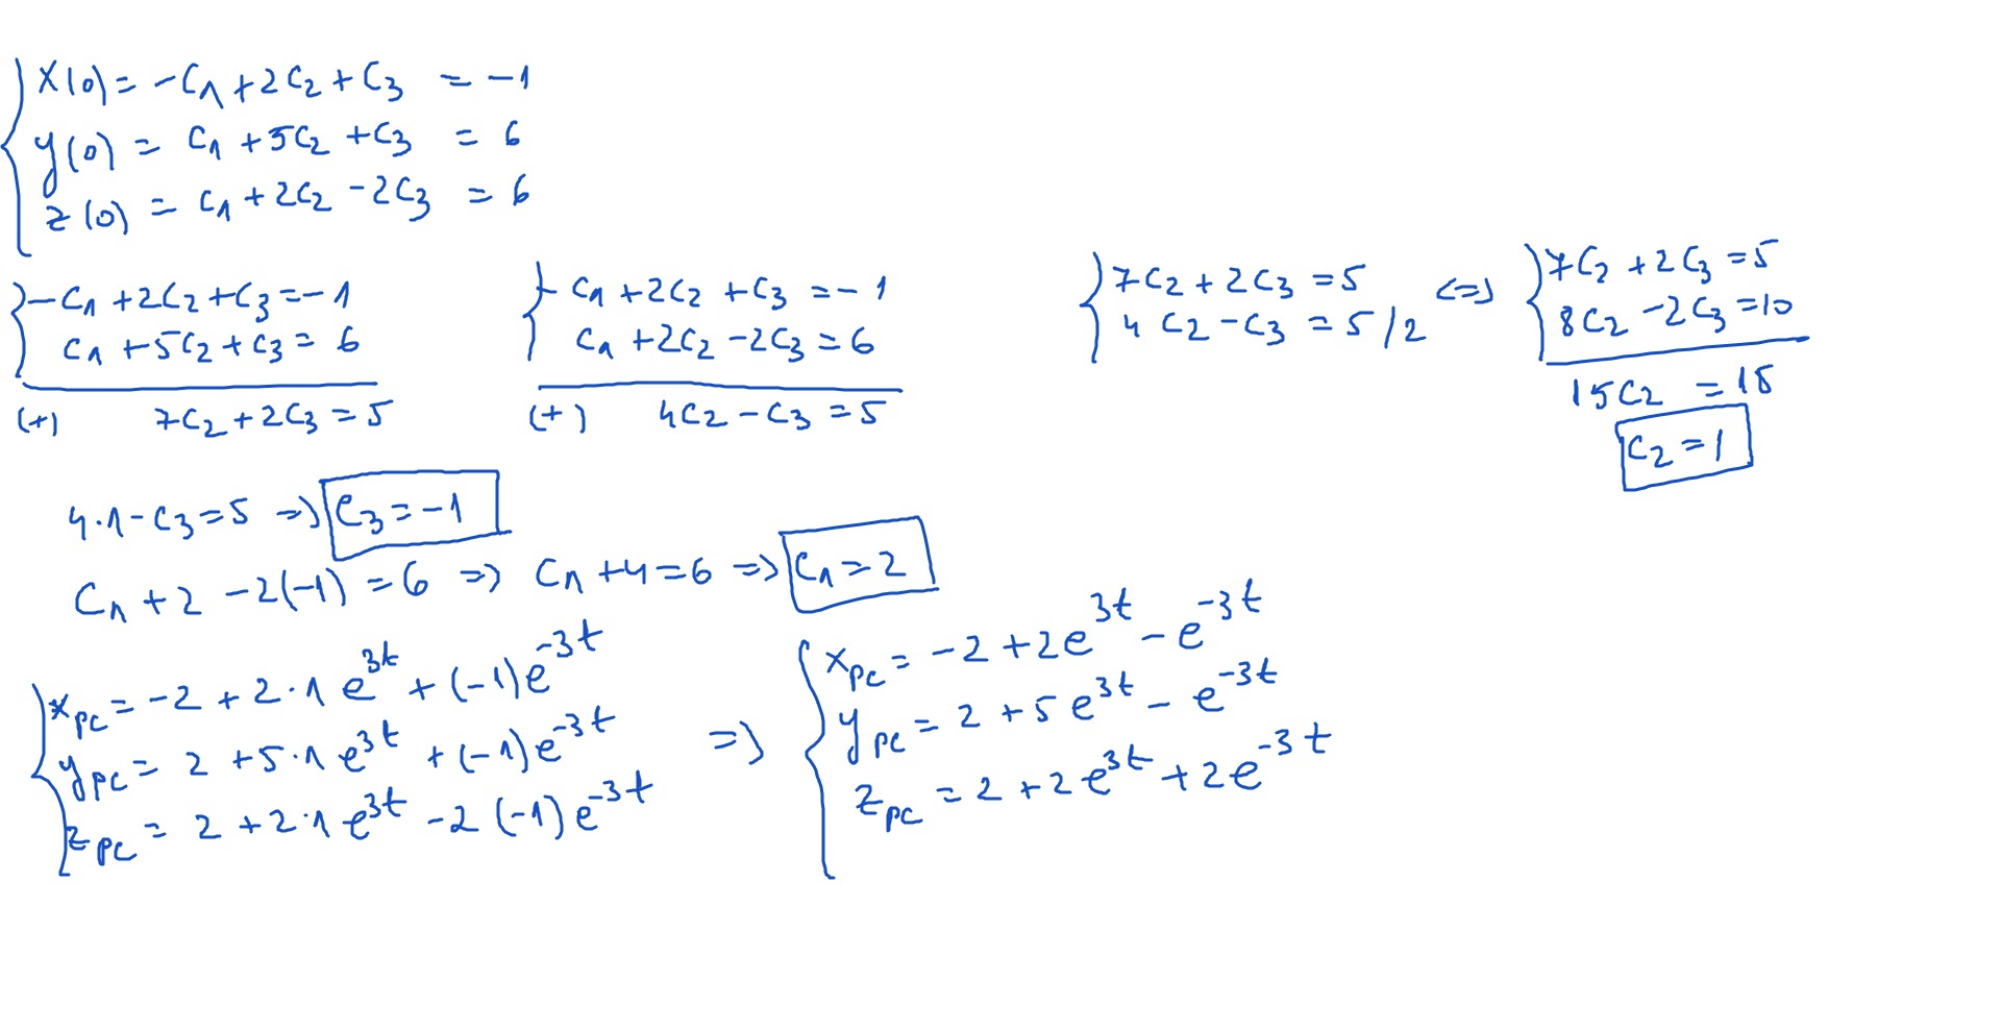 x(0) = -C₁ + 2C₂ + C₃ = -1
y(0) = C₁ + 5C₂ + C₃ = 6
z(0) = C₁ + 2C₂ - 2C₃ = 6
-C₁ + 2C₂ + C₃ = -1
C₁ + 5C₂ + C₃ = 6
(+) 7C₂ + 2C₃ = 5
-C₁ + 2C₂ + C₃ = -1
C₁ + 2C₂ - 2C₃ = 6
(+) 4C₂ - C₃ = 5
7C₂ + 2C₃ = 5
4C₂ - C₃ = 5 /2
<=>
7C₂ + 2C₃ = 5
8C₂ - 2C₃ = 10
15C₂ = 15
C₂ = 1
4·1 - C₃ = 5 => C₃ = -1
C₁ + 2 - 2(-1) = 6 => C₁ + 4 = 6 => C₁ = 2
x_pc = -2 + 2·1 e^{3t} + (-1)e^{-3t}
y_pc = 2 + 5·1 e^{3t} + (-1)e^{-3t}
z_pc = 2 + 2·1 e^{3t} - 2(-1)e^{-3t}
=>
x_pc = -2 + 2e^{3t} - e^{-3t}
y_pc = 2 + 5e^{3t} - e^{-3t}
z_pc = 2 + 2e^{3t} + 2e^{-3t}